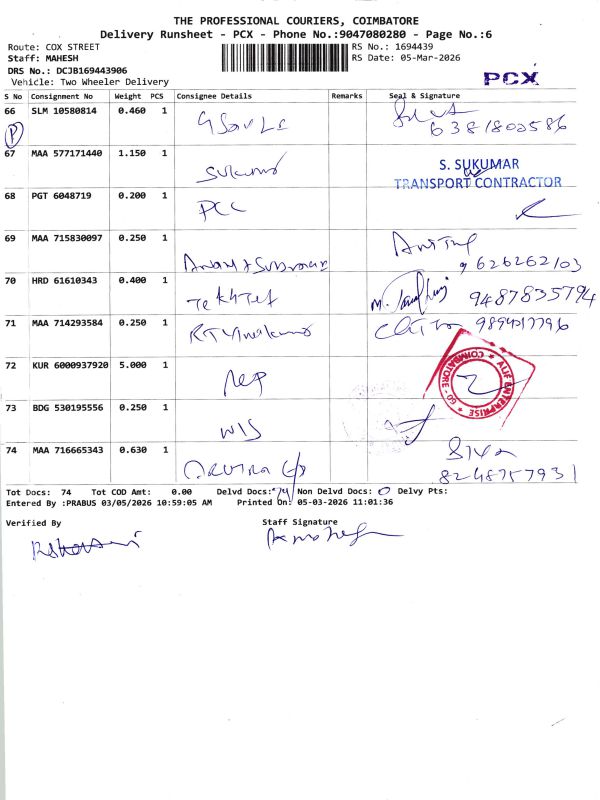 THE PROFESSIONAL COURIERS, COIMBATORE
Delivery Runsheet - PCX - Phone No.:9047080280 - Page No.:6
Route: COX STREET
RS No.: 1694439
Staff: MAHESH
RS Date: 05-Mar-2026
DRS No.: DCJB169443906
Vehicle: Two Wheeler Delivery
PCX
S No Consignment No Weight PCS Consignee Details Remarks Seal & Signature
66 SLM 10580814 0.460 1
P
6381802586
67 MAA 577171440 1.150 1 Sukumar
S. SUKUMAR
TRANSPORT CONTRACTOR
68 PGT 6048719 0.200 1 PCC
69 MAA 715830097 0.250 1
9626262103
70 HRD 61610343 0.400 1 9487835794
71 MAA 714293584 0.250 1
72 KUR 6000937920 5.000 1
ALIF ENTERPRISE
COIMBATORE - 60
73 BDG 530195556 0.250 1 WIS
74 MAA 716665343 0.630 1 Siva
8248757931
Tot Docs: 74 Tot COD Amt: 0.00 Delvd Docs: 74 Non Delvd Docs: 0 Delvy Pts:
Entered By :PRABUS 03/05/2026 10:59:05 AM Printed On: 05-03-2026 11:01:36
Verified By Staff Signature